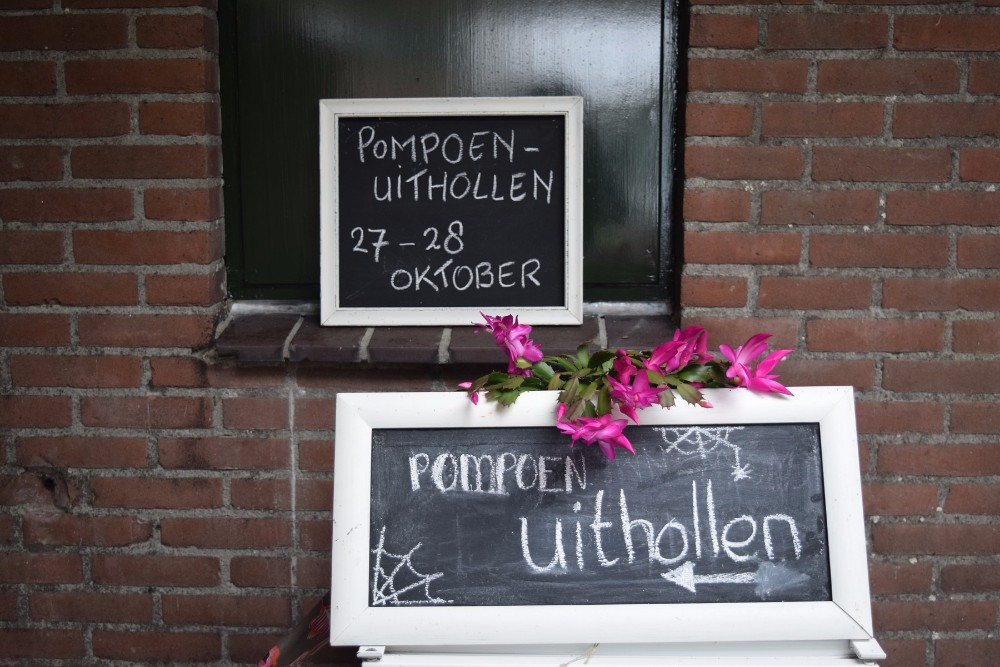 POMPOEN-
UITHOLLEN
27-28
OKTOBER
POMPOEN
uithollen